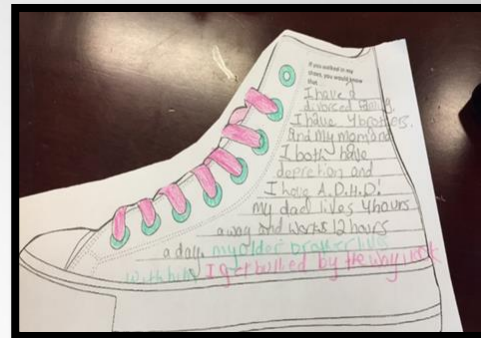 If you walked in my
shoes, you would know
that
I have a
divorced family.
I have 4 brothers.
And My mom and
I both have
depretion and
I have A.D.H.D!
my dad lives 4 hours
away and works 12 hours
a day. my older brother lives
with him I get bullied by the way I look